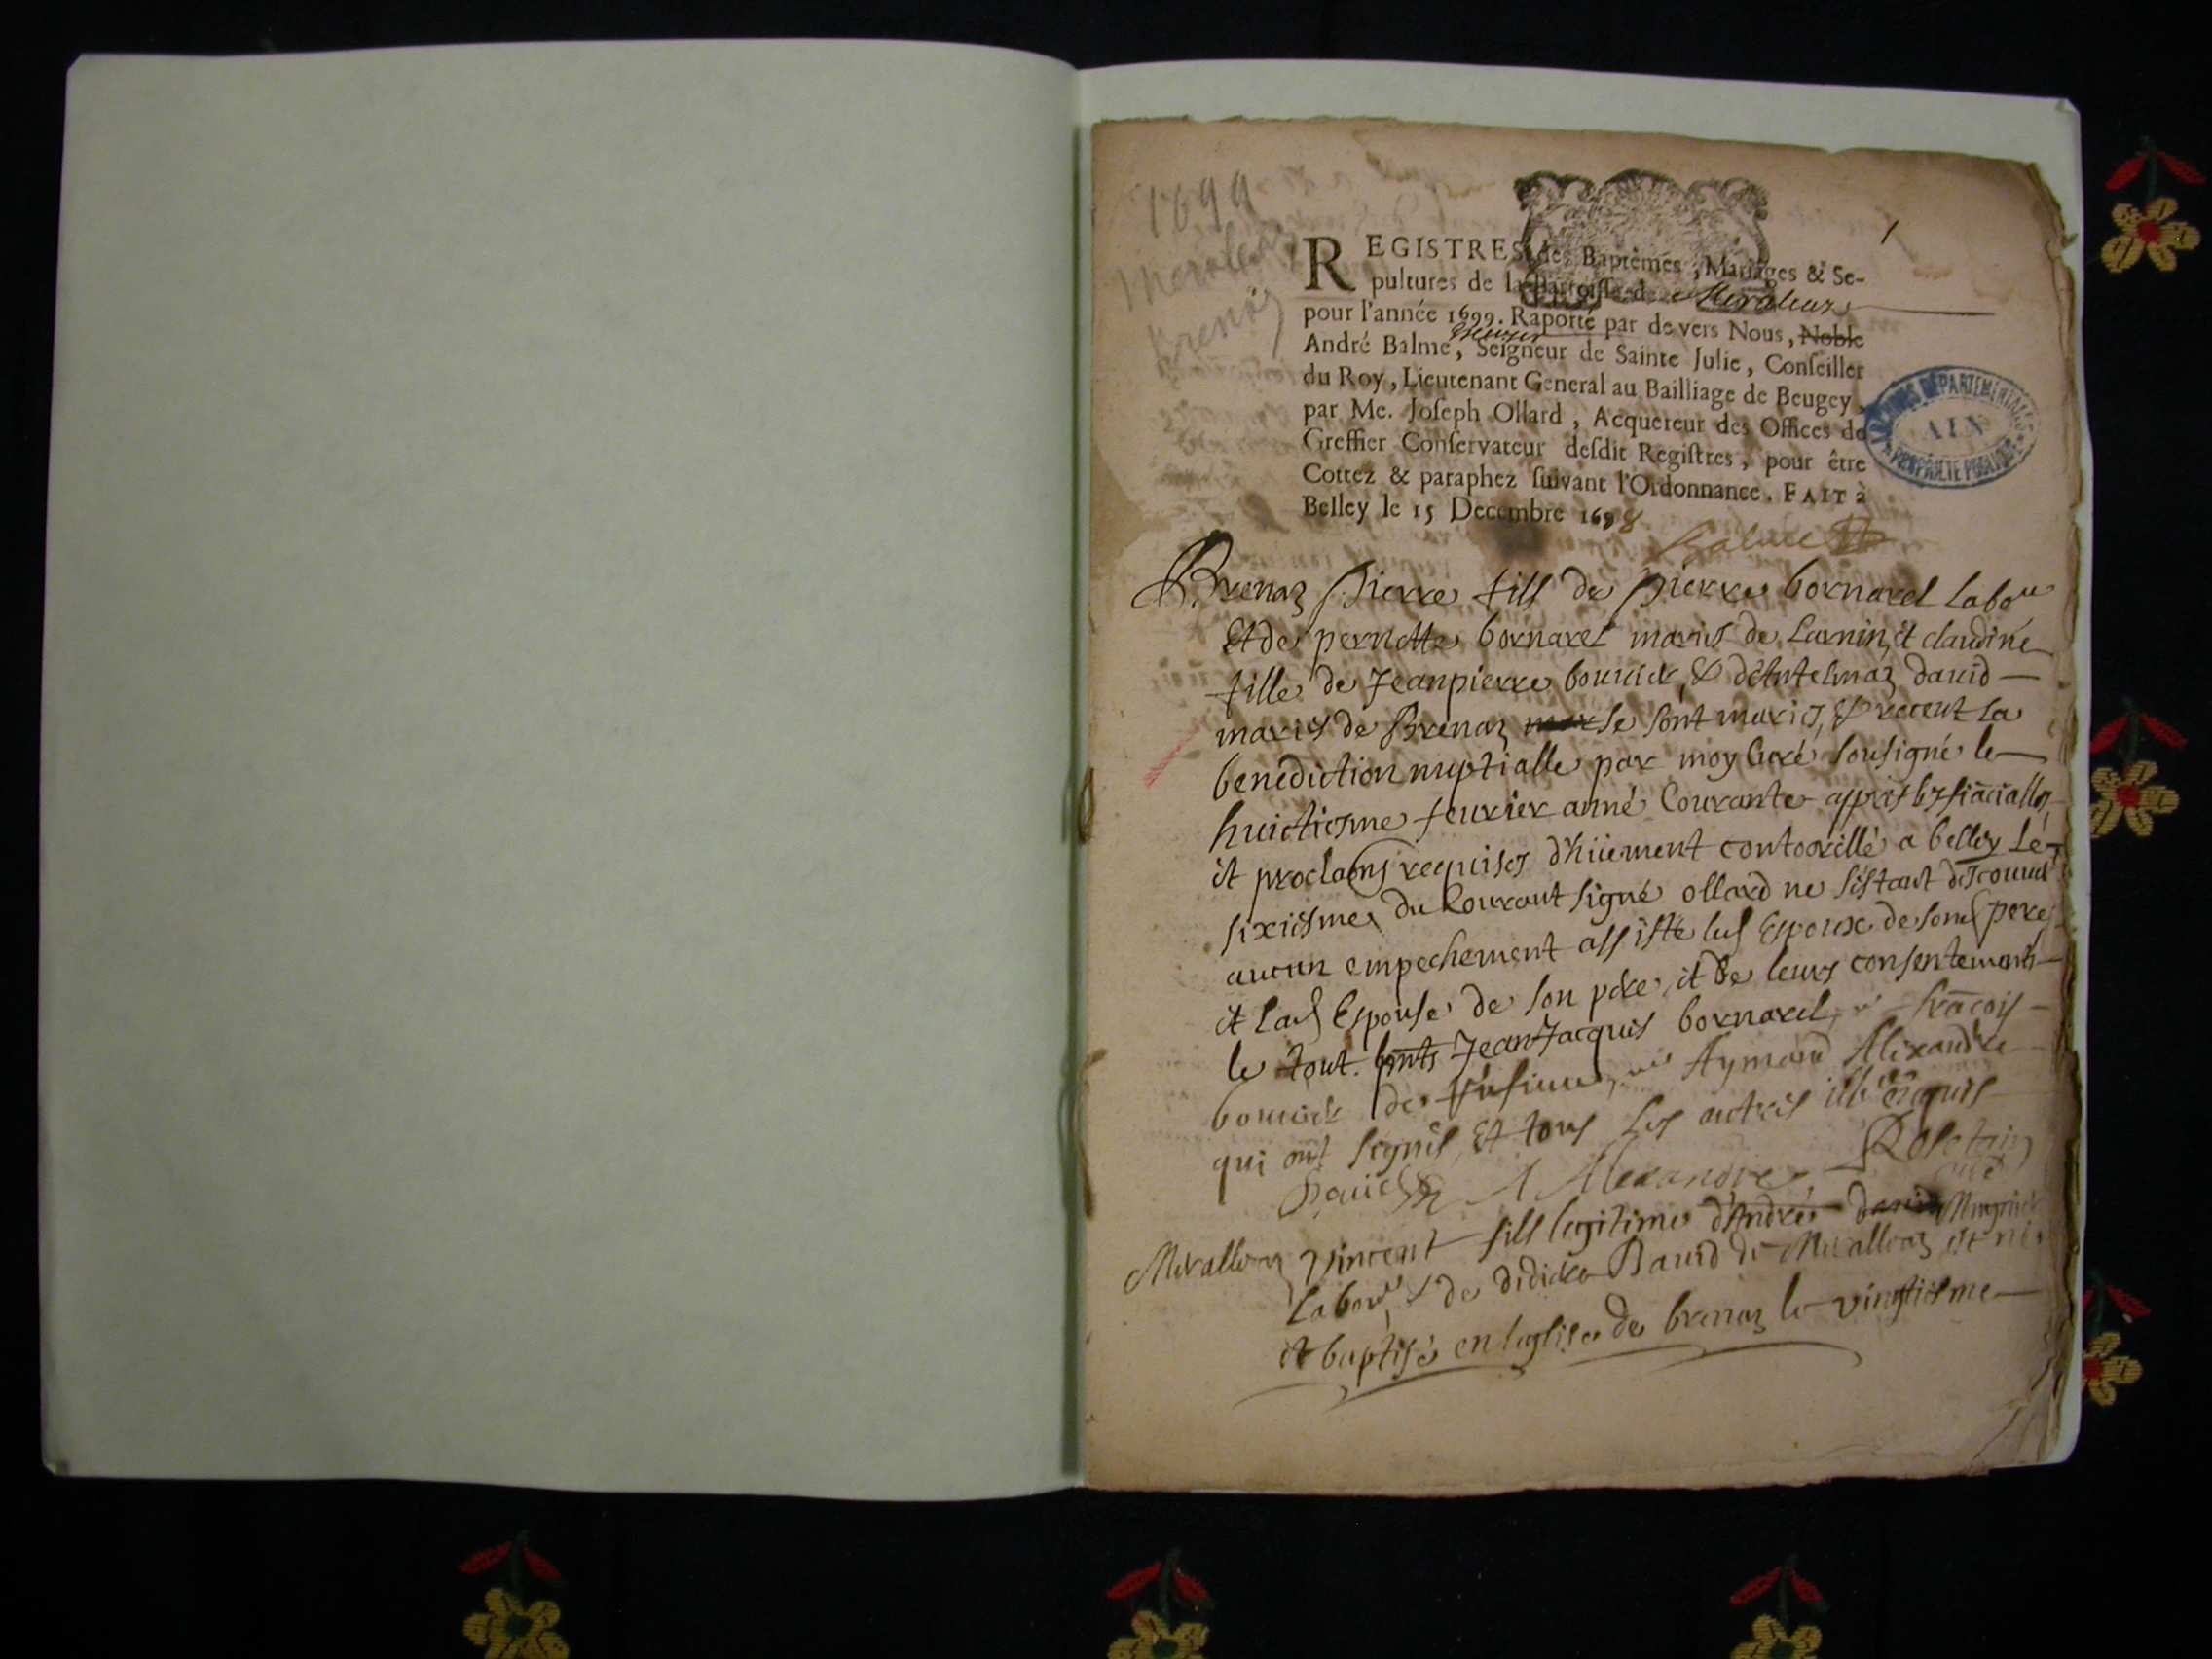 1699
1
REGISTRES des Baptêmes, Mariages & Se-
pultures de la Parroisse de Meraleaz
pour l'année 1699. Raporté par devers Nous, Noble
Escuyer
André Balme, Seigneur de Sainte Julie, Conseiller
du Roy, Lieutenant General au Bailliage de Beugey,
par Me. Joseph Ollard, Acquereur des Offices de
Greffier Conservateur desdit Registres, pour être
Cottez & paraphez suivant l'Ordonnance. FAIT à
Belley le 15 Decembre 1698
ARCHIVES DEPARTEMENTALES
AIN
PROPRIETE PUBLIQUE
Balme
Brenaz Pierre fills de Pierre bornarel labour
Et de pernette bornarel mariés de et claudine
fille de Jeanpierre & d'Antelmaz david
mariés de Brenaz se sont mariés, & receut la
benediction nuptialle par moy curé sousigné le
huictiesme feurier anné Courante appres les fiacialles
et proclaons requises dhüement contoorillé a belley le
sixiesme du Courant signé ollard ne s'estant descouuert
aucun empechement assisté led Espoux de sond pere
et lad Espouse de son pere, et de leurs consentements
le tout. pnts JeanJacques bornarel, fracois
de Aymard Alexandre
qui ont signés, Et tous les autres enquis
Dauid A Alexandre
Meralleaz Vincent fills legitime d'André david
labour & de didière Dauid de Meralleaz est né
et baptisé en leglise de brenaz le vingtiesme